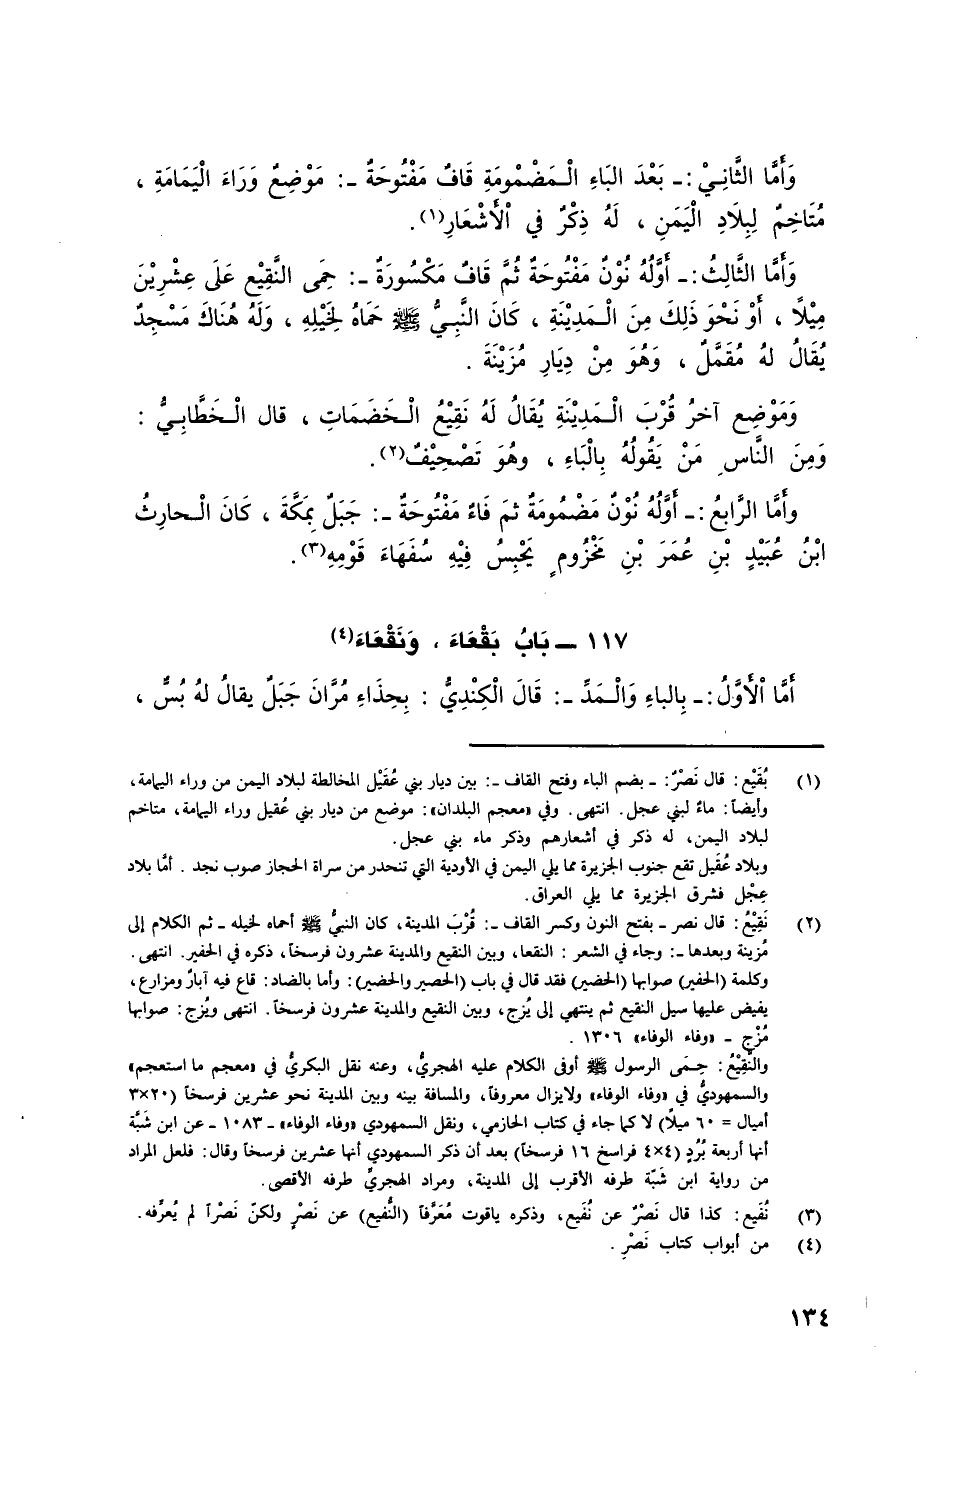 وَأَمَّا الثَّانِيْ :ـ بَعْدَ البَاءِ الْـمَضْمُومَةِ قَافٌ مَفْتُوحَةٌ ـ: مَوْضِعٌ وَرَاءَ الْيَمَامَةِ ،
مُتَاخِمٌ لِبِلَادِ الْيَمَنِ ، لَهُ ذِكْرٌ في اْلأَشْعَارِ(١).
وَأَمَّا الثَّالِثُ :ـ أَوَّلُهُ نُوْنٌ مَفْتُوحَةٌ ثُمَّ قَافٌ مَكْسُورَةٌ ـ: حِمَى النَّقِيْعِ عَلَى عِشْرِيْنَ
مِيْلًا ، أَوْ نَحْوَ ذَلِكَ مِنَ الْـمَدِيْنَةِ ، كَانَ النَّبِيُّ ﷺ حَمَاهُ لِخَيْلِهِ ، وَلَهُ هُنَاكَ مَسْجِدٌ
يُقَالُ لهُ مُقَمَّلٌ ، وَهُوَ مِنْ دِيَارِ مُزَيْنَةَ .
وَمَوْضِع آخرُ قُرْبَ الْـمَدِيْنَةِ يُقَالُ لَهُ نَقِيْعُ الْـخَضَمَاتِ ، قال الْـخَطَّابِيُّ :
وَمِنَ النَّاسِ مَنْ يَقُولُهُ بِالْبَاءِ ، وهُوَ تَصْحِيْفٌ(٢).
وأَمَّا الرَّابعُ :ـ أَوَّلُهُ نُوْنٌ مَضْمُومَةٌ ثمَ فَاءٌ مَفْتُوحَةٌ ـ: جَبَلٌ بِمَكَّةَ ، كَانَ الْـحارِثُ
ابْنُ عُبَيْدٍ بْنِ عُمَرَ بْنِ مَخْزُومٍ يَحْبِسُ فِيْهِ سُفَهَاءَ قَوْمِهِ(٣).
١١٧ ـ بَابُ بَقْعَاءَ ، وَنَقْعَاءَ(٤)
أَمَّا اْلأَوَّلُ :ـ بِالباءِ وَالْـمَدِّ ـ: قَالَ الْكِنْدِيُّ : بِحِذَاءِ مُرَّانَ جَبَلٌ يقالُ لهُ بُسٌّ ،
(١) بُقَيْع: قال نَصْرٌ: ـ بضم الباء وفتح القاف ـ: بين ديار بني عُقَيْل المخالطة لبلاد اليمن من وراء اليمامة،
وأيضاً: ماءٌ لبني عجل. انتهى. وفي «معجم البلدان»: موضع من ديار بني عُقيل وراء اليمامة، متاخم
لبلاد اليمن، له ذكر في أشعارهم وذكر ماء بني عجل.
وبلاد عُقَيل تقع جنوب الجزيرة مما يلي اليمن في الأودية التي تنحدر من سراة الحجاز صوب نجد . أمَّا بلاد
عِجْل فشرق الجزيرة مما يلي العراق.
(٢) نَقِيْعُ: قال نصر ـ بفتح النون وكسر القاف ـ: قُرْبَ المدينة، كان النبيُّ ﷺ أحماه لخيله ـ ثم الكلام إلى
مُزينة وبعدها ـ: وجاء في الشعر : النقعا، وبين النقيع والمدينة عشرون فرسخاً، ذكره في الحفير. انتهى.
وكلمة (الحفير) صوابها (الخضير) فقد قال في باب (الحصير والخضير): وأما بالضاد: قاع فيه آبارٌ ومزارع،
يفيض عليها سيل النقيع ثم ينتهي إلى يُزج، وبين النقيع والمدينة عشرون فرسخاً. انتهى ويُزج: صوابها
مُزْج ـ «وفاء الوفاء» ١٣٠٦ .
والنَّقِيْعُ: حِـمَى الرسول ﷺ أوفى الكلام عليه الهجريُّ، وعنه نقل البكريُّ في «معجم ما استعجم»
والسمهوديُّ في «وفاء الوفاء» ولايزال معروفاً، والمسافة بينه وبين المدينة نحو عشرين فرسخاً (٢٠×٣
أميال = ٦٠ ميلاً) لا كما جاء في كتاب الحازمي، ونقل السمهودي «وفاء الوفاء» ـ ١٠٨٣ ـ عن ابن شَبَّة
أنها أربعة بُرُدٍ (٤×٤ فراسخ ١٦ فرسخاً) بعد أن ذكر السمهودي أنها عشرين فرسخاً وقال: فلعل المراد
من رواية ابن شَبّة طرفه الأقرب إلى المدينة، ومراد الهجريِّ طرفه الأقصى.
(٣) نُفَيع: كذا قال نَصْرٌ عن نُفَيع، وذكره ياقوت مُعَرَّفاً (النُّفيع) عن نَصْرٍ ولكنّ نَصْراً لم يُعرِّفه.
(٤) من أبواب كتاب نَصْرٍ .
١٣٤